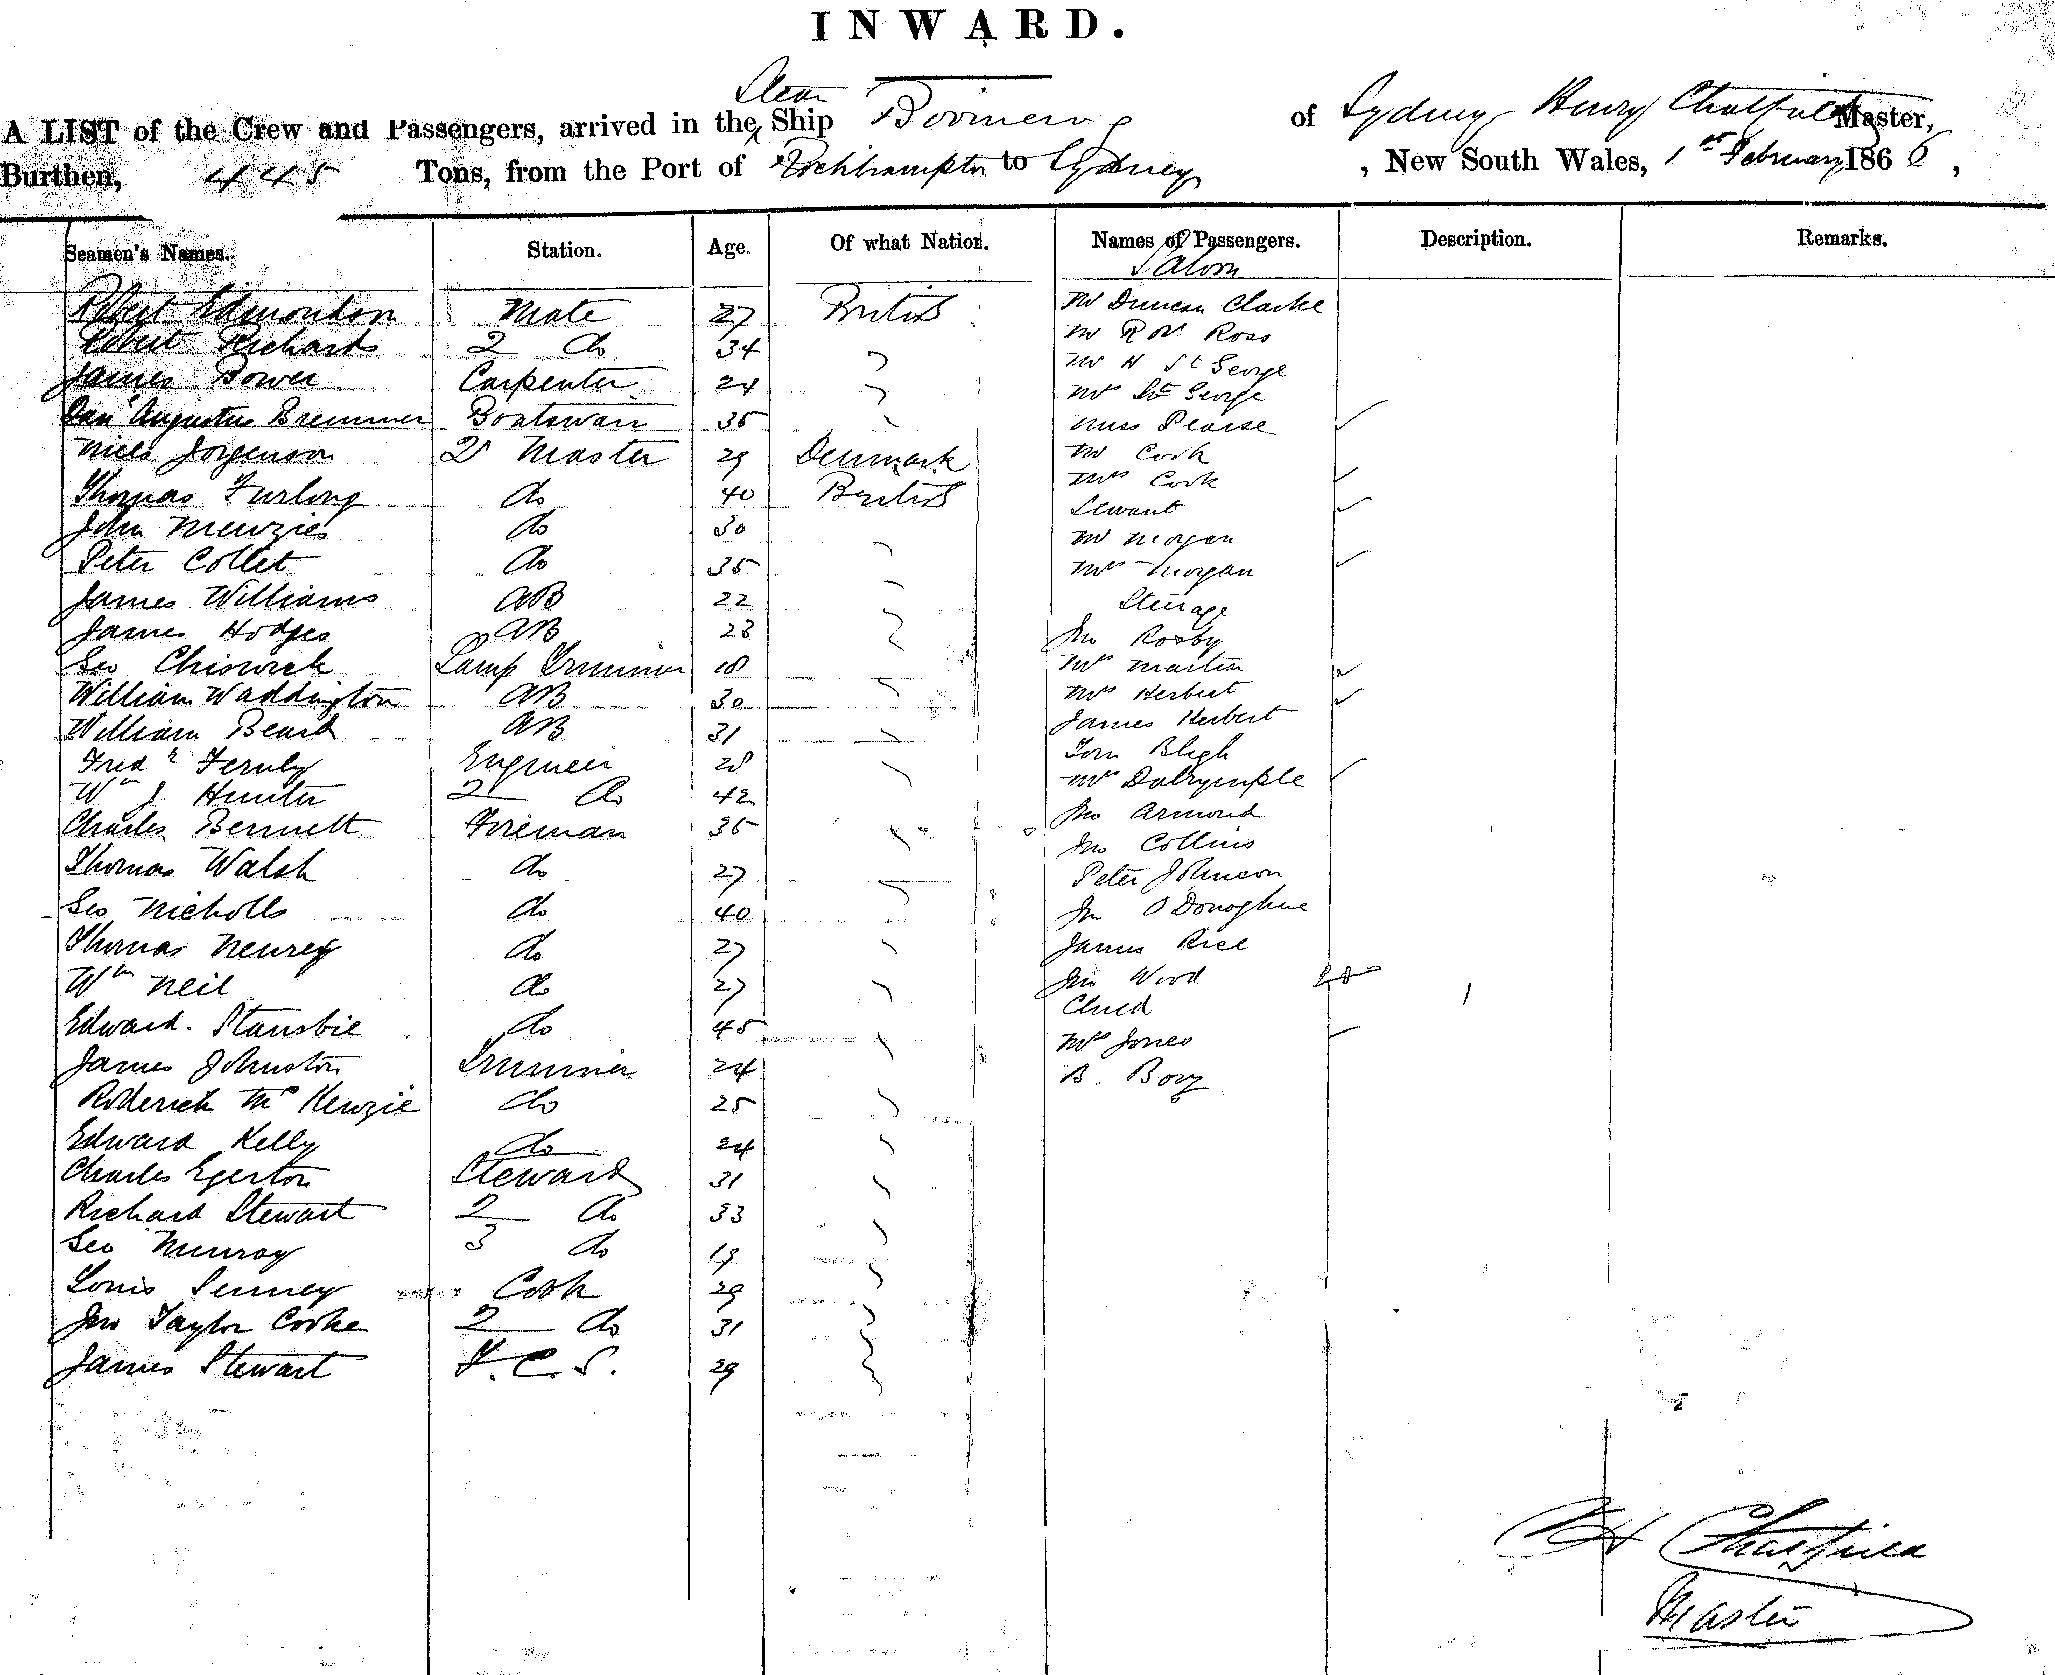 INWARD.
Steam
A LIST of the Crew and Passengers, arrived in the Ship Boomerang of Sydney Henry Chatfield Master,
Burthen, 445 Tons, from the Port of Rockhampton to Sydney, New South Wales, 1st February 1866,
Seamen's Names. Station. Age. Of what Nation. Names of Passengers. Description. Remarks.
Saloon
Robert Edmondson Mate 27 British Mr Duncan Clarke
Robert Richards 2 do 34 Mr R W Ross
James Bower Carpenter 24 Mr H St George
Augustus Bremmer Boatswain 35 Mrs St George
Miss Pearse
Niels Jorgenson 2r Master 29 Denmark Mr Cook
Thomas Furlong do 40 British Mrs Cook
Servant
John Menzies do 30 Mr Morgan
Peter Collet do 35 Mrs Morgan
James Williams AB 22 Steerage
James Hodges AB 28 Jno Rosby
Geo Chiswick Lamp Trimmer 18 Mrs Martin
William Waddington AB 30 Mrs Herbert
James Herbert
William Beard AB 31 Tom Bligh
Fredk Fernly Engineer 28 Mrs Dalrymple
Wm J Hunter 2 do 42 Jno Armond
Charles Bennett Fireman 36 Jno Collins
Thomas Walsh do 27 Peter Johnson
Geo Nicholls do 40 Jno O Donoghue
Thomas Newrey do 27 James Rice
Wm Neil do 27 Jno Wood
Child
Edward Stansbie do 45 Mrs Jones
James Johnston Trimmer 24 B. Bory
Roderick McKenzie do 25
Edward Kelly do 24
Charles Egerton Steward 31
Richard Stewart 2 do 33
Geo Munroy 3 do 19
Louis Senney Cook 29
Jno Taylor Cooke 2 do 31
James Stewart F. C. S. 29
H Chatfield
Master